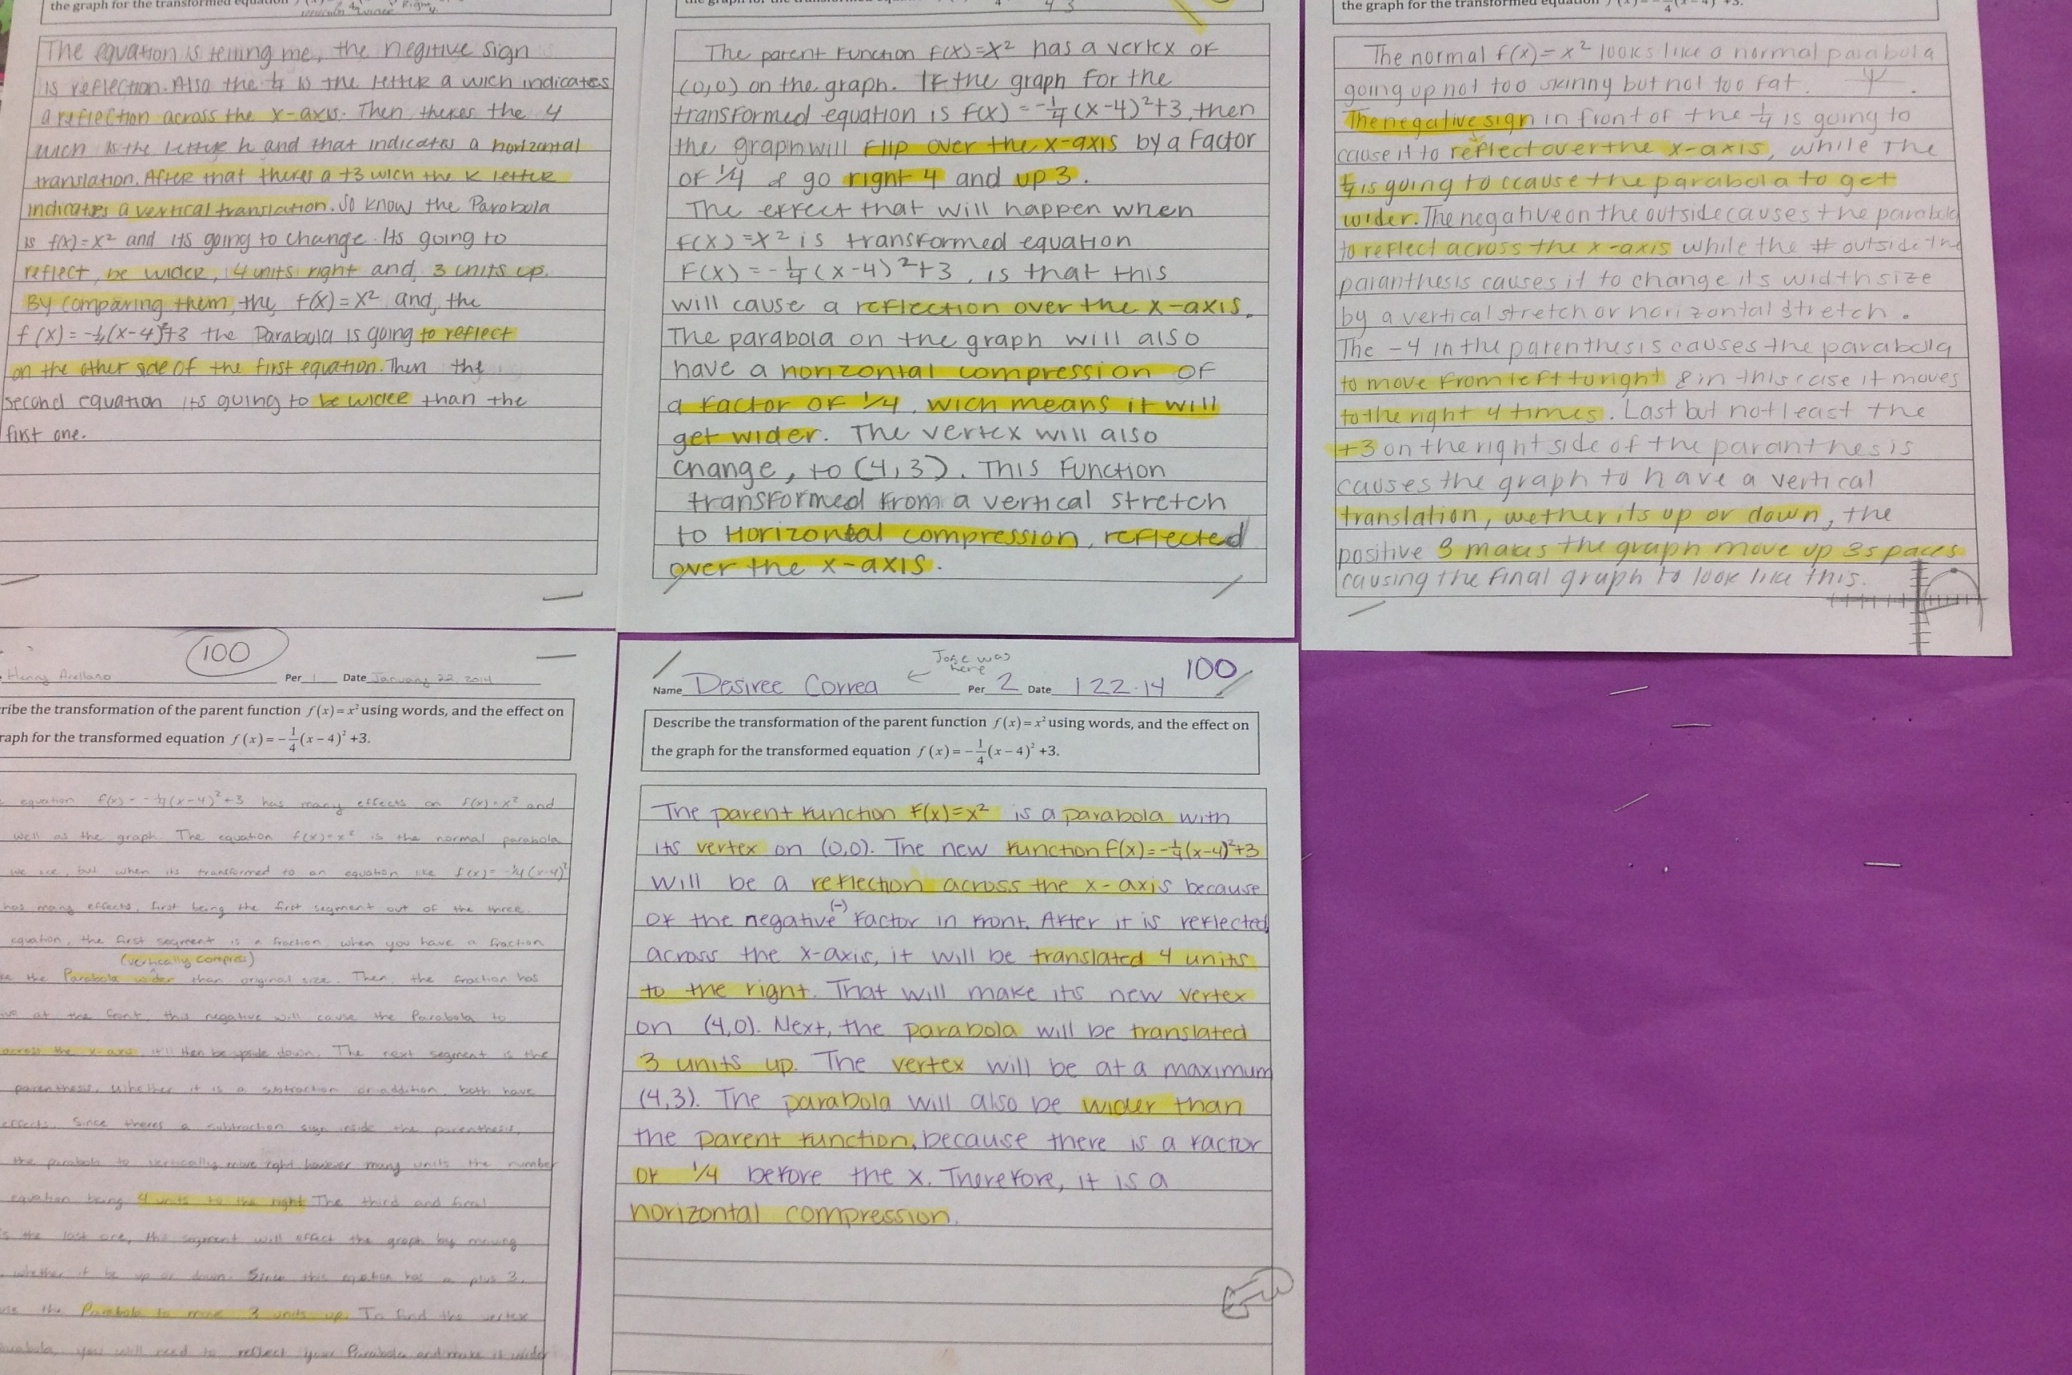 the graph for the transformed equation
The equation is telling me, the negitive sign
is reflection. Also the 1/4 is the letter a wich indicates
a reflection across the x-axis. Then theres the 4
wich is the letter h and that indicates a horizontal
translation. After that theres a +3 wich the k letter
indicates a vertical translation. So know the Parabola
is f(x)=x² and its going to change. Its going to
reflect, be wider, 4 units right and, 3 units up.
By comparing them, the, f(x)=x² and, the
f(x)=-1/4(x-4)²+3 the Parabola is going to reflect
on the other side of the first equation. Then the
second equation its going to be wider than the
first one.
The parent function f(x)=x² has a vertex of
(0,0) on the graph. If the graph for the
transformed equation is f(x)=-1/4(x-4)²+3, then
the graph will flip over the x-axis by a factor
of 1/4 & go right 4 and up 3.
The effect that will happen when
f(x)=x² is transformed equation
f(x)=-1/4(x-4)²+3, is that this
will cause a reflection over the x-axis.
The parabola on the graph will also
have a horizontal compression of
a factor of 1/4, wich means it will
get wider. The vertex will also
change, to (4,3). This function
transformed from a vertical stretch
to Horizontal compression, reflected
over the x-axis.
the graph for the transformed equation
The normal f(x)=x² looks like a normal parabola
going up not too skinny but not too fat.
The negative sign in front of the 1/4 is going to
cause it to reflect over the x-axis, while the
1/4 is going to ccause the parabola to get
wider. The negative on the outside causes the parabola
to reflect across the x-axis while the # outside the
paranthesis causes it to change its width size
by a vertical stretch or horizontal stretch.
The -4 in the parenthesis causes the parabola
to move from left to right & in this case it moves
to the right 4 times. Last but not least the
+3 on the right side of the paranthesis
causes the graph to have a vertical
translation, wether its up or down, the
positive 3 makes the graph move up 3 spaces
causing the final graph to look like this.
100
Henry Arellano Per 1 Date January 22, 2014
ribe the transformation of the parent function f(x)=x² using words, and the effect on
raph for the transformed equation f(x)=-1/4(x-4)²+3.
equation f(x)=-1/4(x-4)²+3 has many effects on f(x)=x² and
well as the graph. The equation f(x)=x² is the normal parabola
we see, but when its transformed to an equation like f(x)=-1/4(x-4)²
has many effects, first being the first segment out of the three.
equation, the first segment is a fraction, when you have a fraction
(vertically compress)
the Parabola wider than original size. Then, the fraction has
at the front, this negative will cause the Parabola to
across the x-axis, it'll then be upside down. The next segment is the
parenthesis. Whether it is a subtraction or addition, both have
effects. Since theres a subtraction sign inside the parenthesis,
the parabola to vertically move right however many units the number
equation being 4 units to the right. The third and final
is the last one, this segment will effect the graph by moving
whether it be up or down. Since this equation has a plus 3,
the Parabola to move 3 units up. To find the vertex
you will need to reflect your Parabola and make it wider
Jose was
here
100
Name Desiree Correa Per 2 Date 1-22-14
Describe the transformation of the parent function f(x)=x² using words, and the effect on
the graph for the transformed equation f(x)=-1/4(x-4)²+3.
The parent function f(x)=x² is a parabola with
its vertex on (0,0). The new function f(x)=-1/4(x-4)²+3
will be a reflection across the x-axis because
of the negative (-) factor in front. After it is reflected
across the x-axis, it will be translated 4 units
to the right. That will make its new vertex
on (4,0). Next, the parabola will be translated
3 units up. The vertex will be at a maximum
(4,3). The parabola will also be wider than
the parent function, because there is a factor
of 1/4 before the x. Therefore, it is a
horizontal compression.